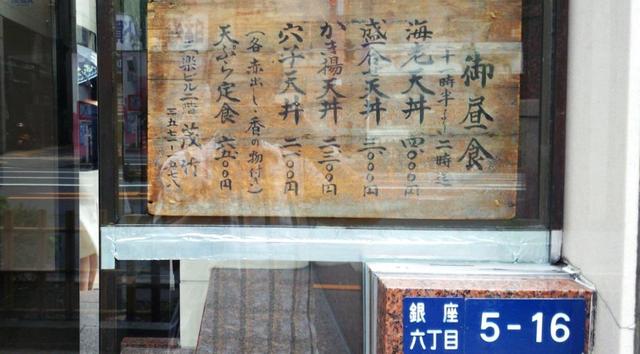 御昼食
十一時半より二時迄
海老天丼 四、〇〇〇円
盛合せ天丼 三、〇〇〇円
かき揚天丼 二、三〇〇円
穴子天丼 二、一〇〇円
(各赤出し、香の物付き)
天ぷら定食 六、五〇〇円
三楽ビル二階 茂竹
三五七二-〇五七八
銀座
六丁目
5-16